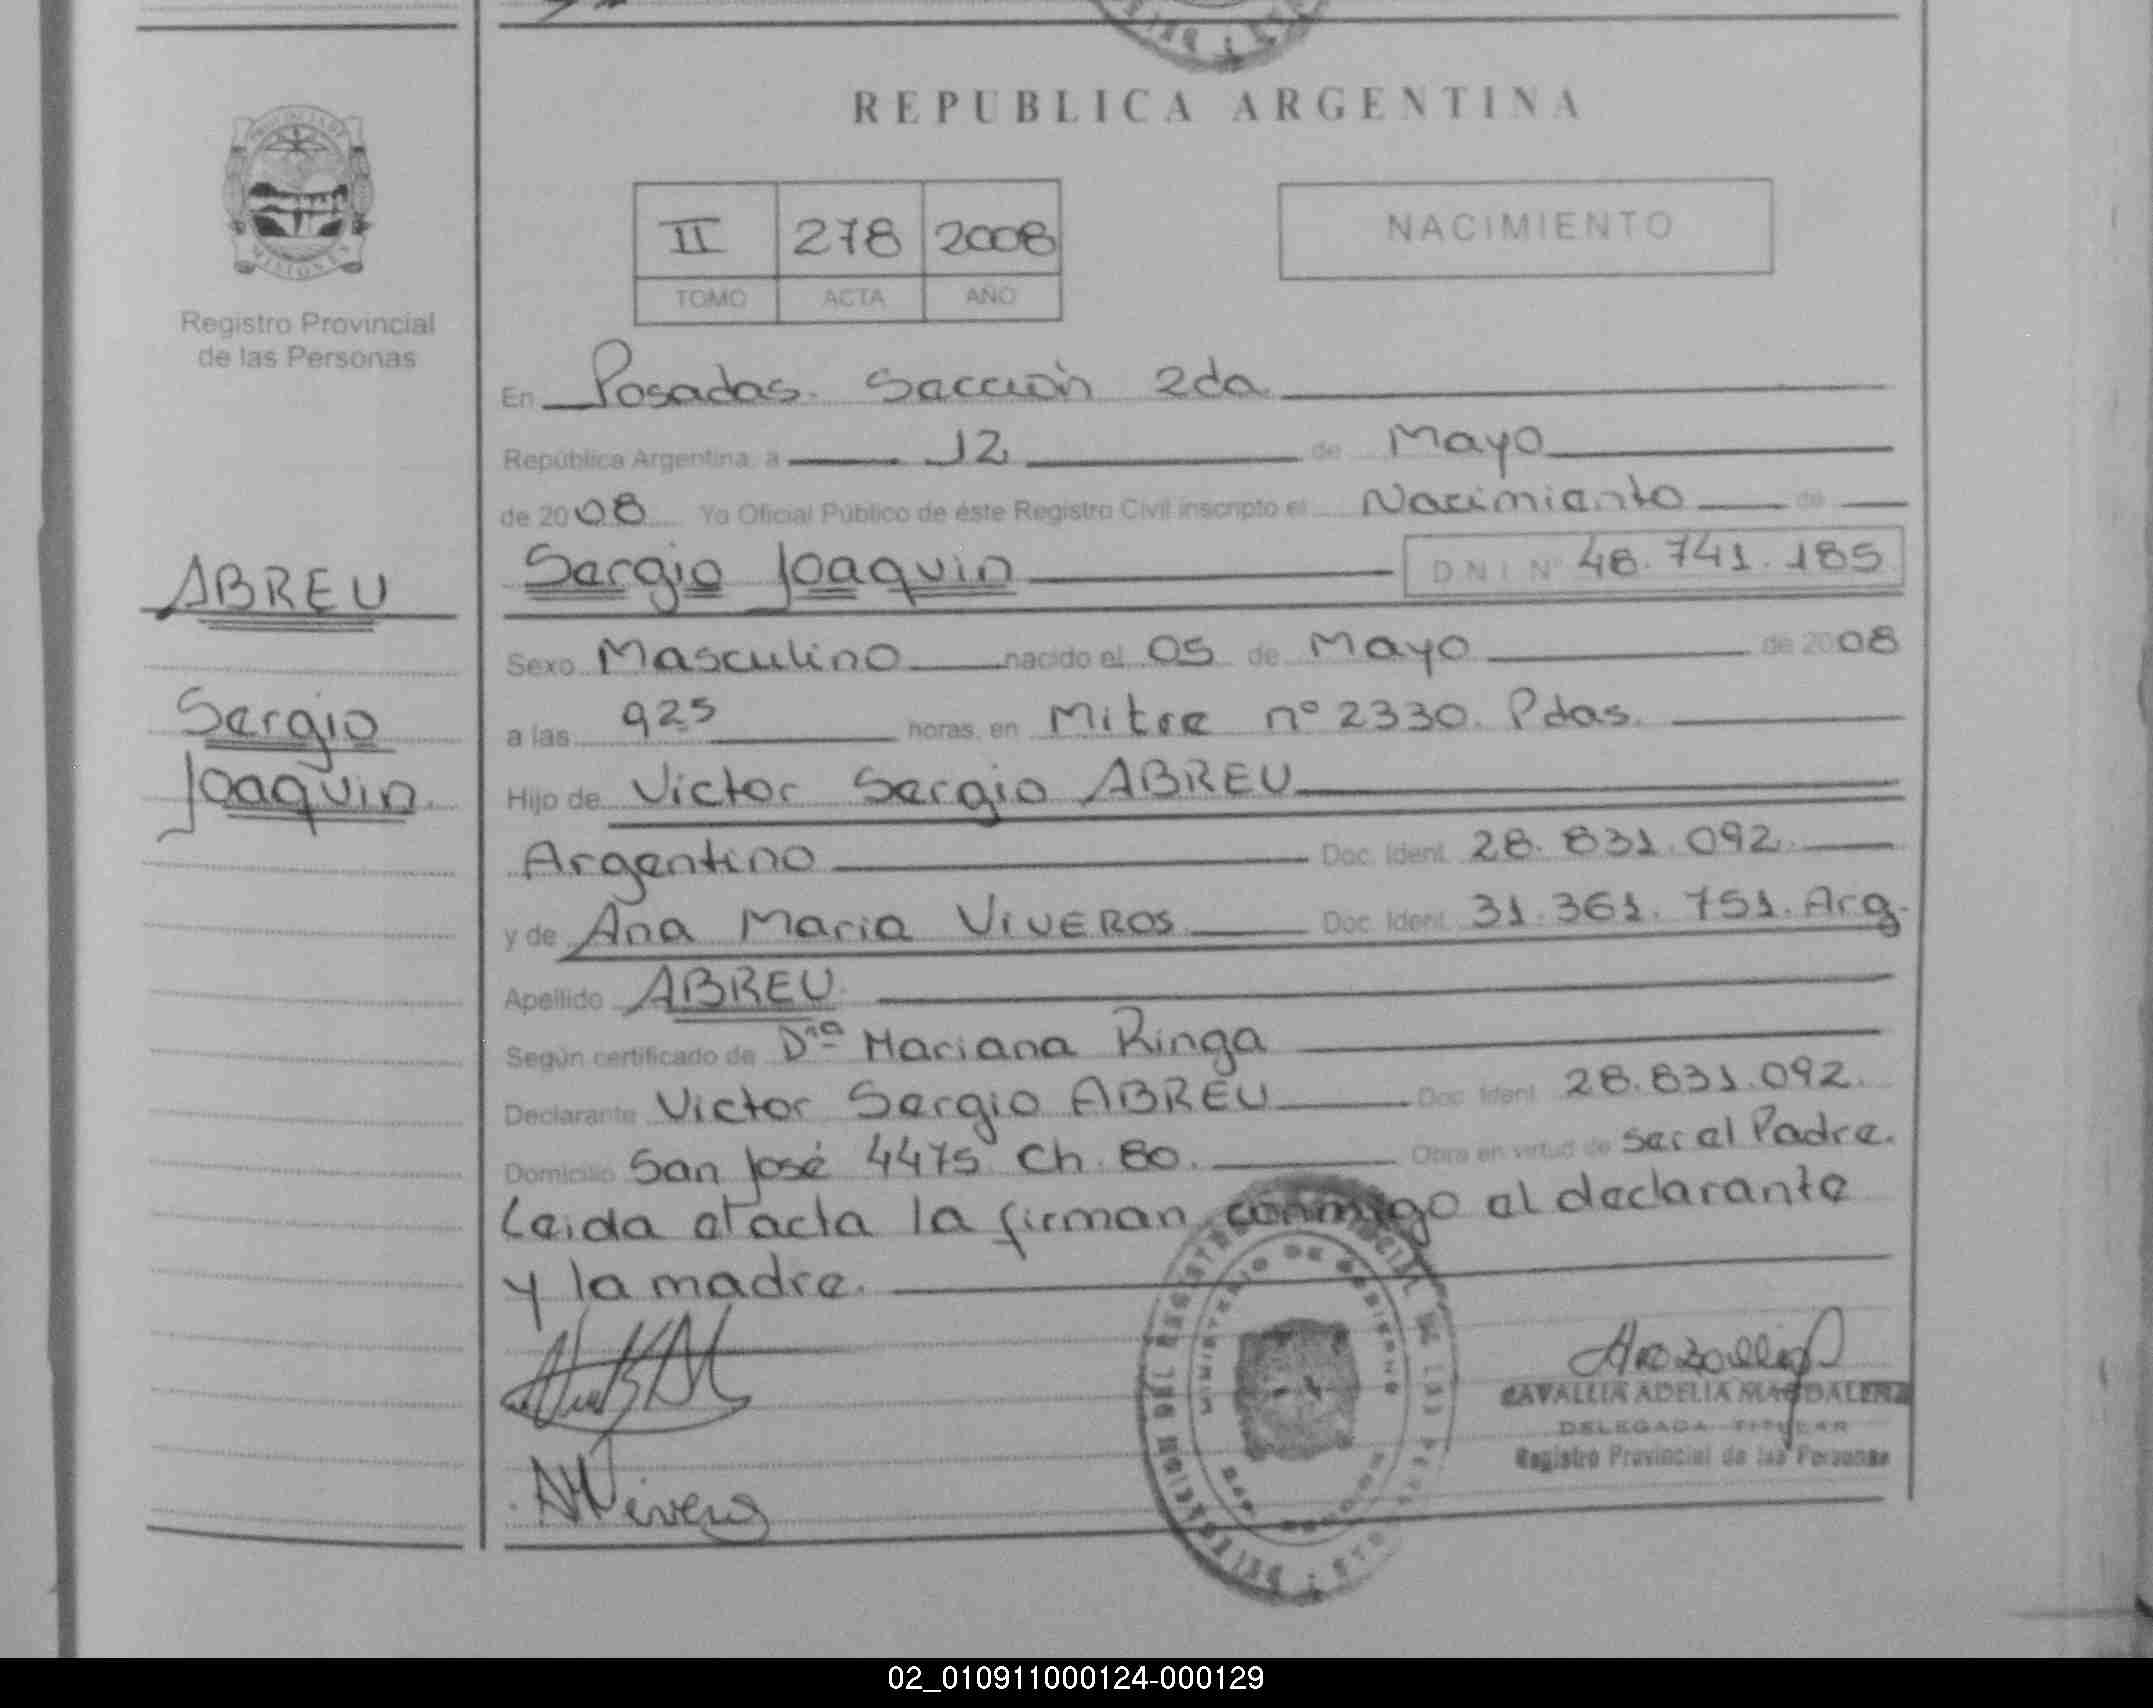 REPUBLICA ARGENTINA
PROVINCIA DE
MISIONES
Registro Provincial
de las Personas
II 278 2008
TOMO ACTA AÑO
NACIMIENTO
En Posadas. Sección 2da
República Argentina, a 12 de Mayo
de 2008 Yo Oficial Público de éste Registro Civil inscripto el Nacimiento de
ABREU
Sergio
Joaquin.
Sergio Joaquin DNI Nº 48.741.185
Sexo Masculino nacido el 05 de Mayo de 2008
a las 925 horas, en Mitre nº 2330. Pdas.
Hijo de Victor Sergio ABREU
Argentino Doc. Ident. 28.831.092.
y de Ana Maria VIVEROS Doc. Ident. 31.361.751. Arg.
Apellido ABREU.
Según certificado de Dra Mariana Ringa
Declarante Victor Sergio ABREU Doc. Ident. 28.831.092.
Domicilio San José 4475 Ch. 80. Obra en virtud de ser el Padre.
Leida el acta la firman conmigo el declarante
y la madre.
MINISTERIO DE GOBIERNO
CAVALLIA ADELIA MAGDALENA
DELEGADA TITULAR
Registro Provincial de las Personas
AMViveros
02_010911000124-000129